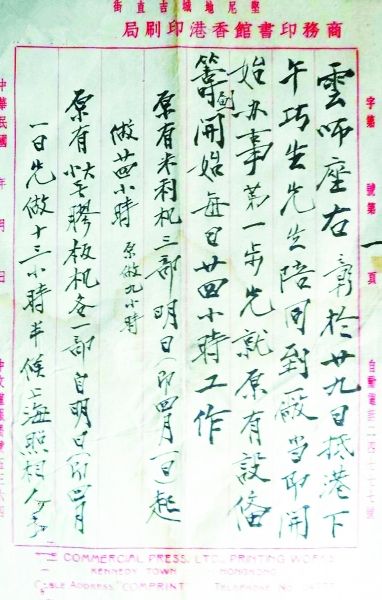 堅尼地城吉直街
商務印書館香港印刷局
字第 號第 一 頁
雲师座右 於廿九日抵港下
午巧生先生陪同到厰当即開
始办事第一步先就原有設備
籌劃開始每日廿四小時工作
原有米利机三部明日(即四月一日)起
做廿四小時 原做九小時
原有大小膠板机各一部自明日(即四月
一日先做十三小時半候上海照相人
中華民國 年 月 日
COMMERCIAL PRESS, LTD., PRINTING WORKS
KENNEDY TOWN HONGKONG
CABLE ADDRESS "COMPRINT" TELEPHONE NO.